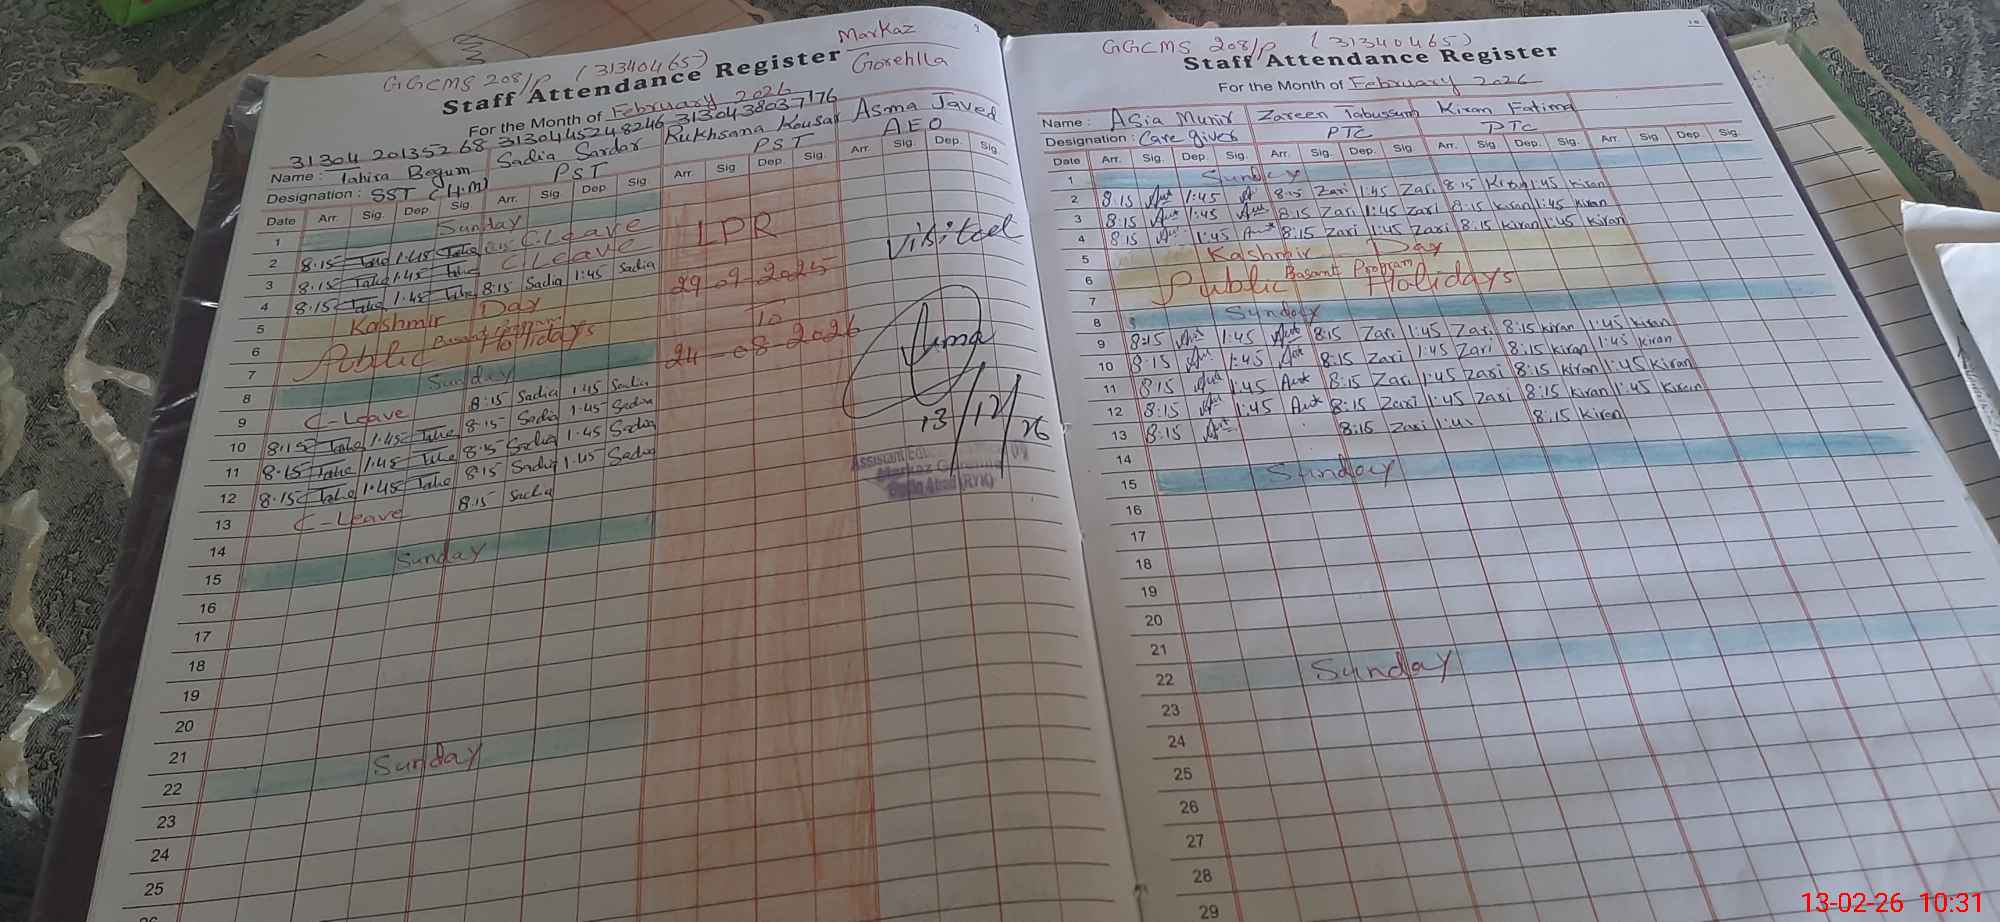 GGCMS 208/P (31340465)
Markaz
Gorehlla
Staff Attendance Register
For the Month of February 2026
31304 2013526 8 3130445248246 3130438037176
Name : Tahira Begum Sadia Sardar Rukhsana Kousar Asma Javed
Designation : SST (H.M) PST PST AEO
Date Arr. Sig. Dep. Sig. Arr. Sig Dep Sig Arr Sig Dep. Sig. Arr. Sig. Dep. Sig.
1 Sunday
2 8:15 1:45 C-Leave
3 8:15 1:45 C Leave
4 8:15 1:45 8:15 Sadia 1:45 Sadia
5 Kashmir Day
6 Public Holidays
7
8 Sunday
9 C-Leave 8:15 Sadia 1:45 Sadia
10 8:15 1:45 8:15 Sadia 1:45 Sadia
11 8:15 1:45 8:15 Sadia 1:45 Sadia
12 8:15 1:45 8:15 Sadia 1:45 Sadia
13 C-Leave 8:15 Sadia
14
15 Sunday
16
17
18
19
20
21
22 Sunday
23
24
25
LPR
29-09-2025
To
24-08-2026
Visited
Asma
Markaz
9
10
GGCMS 208/P (31340465)
Staff Attendance Register
For the Month of February 2026
Name : Asia Munir Zareen Tabussum Kiran Fatima
Designation : Care giver PTC PTC
Date Arr. Sig. Dep. Sig. Arr. Sig. Dep. Sig. Arr. Sig. Dep. Sig. Arr. Sig. Dep. Sig.
1 Sunday
2 8:15 1:45 8:15 Zari 1:45 Zari 8:15 Kiran 1:45 Kiran
3 8:15 1:45 8:15 Zari 1:45 Zari 8:15 Kiran 1:45 Kiran
4 8:15 1:45 8:15 Zari 1:45 Zari 8:15 Kiran 1:45 Kiran
5 Kashmir Day
6 Basant Program
Public Holidays
7
8 Sunday
9 8:15 1:45 8:15 Zari 1:45 Zari 8:15 Kiran 1:45 Kiran
10 8:15 1:45 8:15 Zari 1:45 Zari 8:15 Kiran 1:45 Kiran
11 8:15 1:45 8:15 Zari 1:45 Zari 8:15 Kiran 1:45 Kiran
12 8:15 1:45 8:15 Zari 1:45 Zari 8:15 Kiran 1:45 Kiran
13 8:15 8:15 Zari 8:15 Kiran
14
15 Sunday
16
17
18
19
20
21
22 Sunday
23
24
25
26
27
28
29
13-02-26 10:31